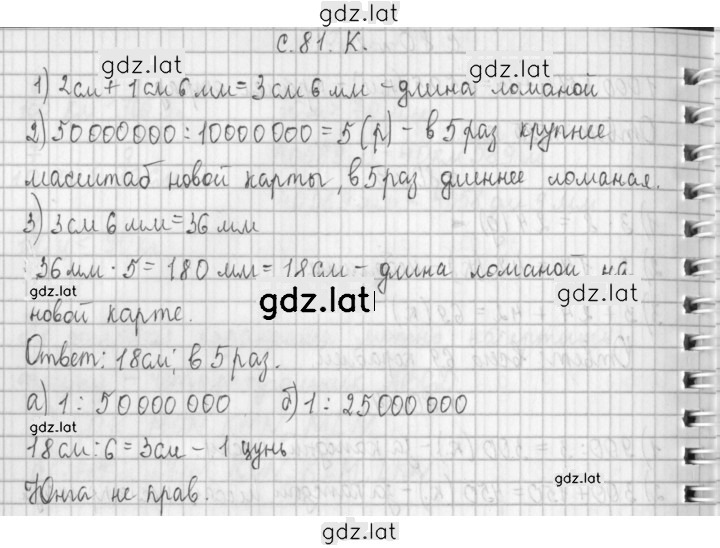 gdz.lat
с.81. К.
gdz.lat
gdz.lat
1) 2см + 1см 6мм = 3см 6мм - длина ломаной
gdz.lat
2) 50000000 : 10000000 = 5 (р) - в 5 раз крупнее
масштаб новой карты, в 5 раз длиннее ломаная.
3) 3см 6мм = 36 мм
36мм · 5 = 180 мм = 18см - длина ломаной на
gdz.lat gdz.lat gdz.lat
новой карте.
Ответ: 18см; в 5 раз.
а) 1 : 50000 000 б) 1 : 25000 000
gdz.lat
18см : 6 = 3см - 1 цунь
Юнга не прав.
gdz.lat
gdz.lat